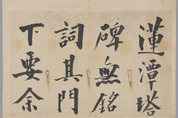 蓮潭塔
碑無銘
詞其門
下要余